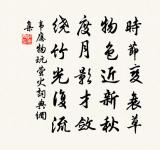 時節变衰草
物色近新秋
度月影才斂
绕竹光復流
韋應物玩螢火詞典網
集